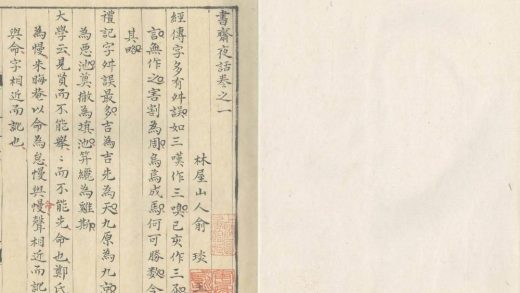 書齋夜話卷之一
林屋山人俞 琰
經傳字多有舛誤如三嘆作三嗅己亥作三
訛無作之害割為周烏焉成馬何可勝數今
其
禮記字舛誤最多吉為告先為天九原為九京
為惡池奠徹為填池
大學云見賢而不能舉舉而不能先命也鄭氏
為慢朱晦菴以命為怠慢與慢聲相近而訛
與命字相近而訛也